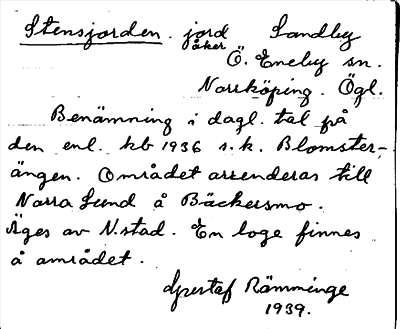 Stensjorden. jord Sandby
åker Ö. Eneby sn.
Norrköping. Ögl.
Benämning i dagl. tal på
den enl. kb 1936 s.k. Blomster-
ängen. Området arrenderas till
Norra Sund å Bäckersmo.
Äges av N.stad. En loge finnes
å området.
Gustaf Rämminge
1939.